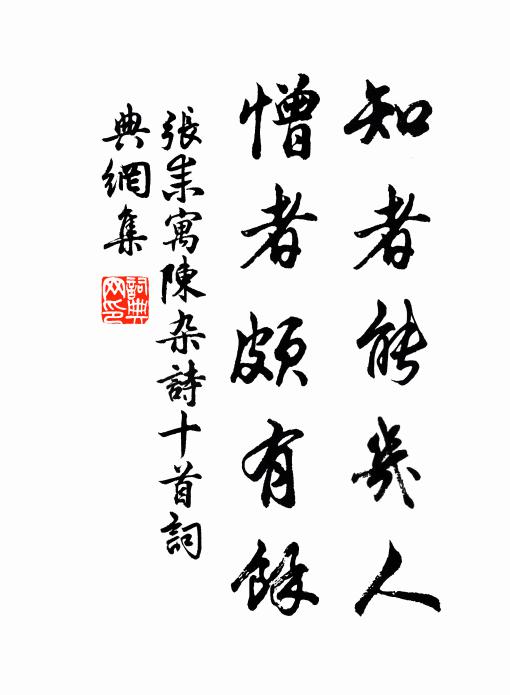 知者能幾人
憎者頗有餘
張耒寓陳杂詩十首詞
典網集
詞典网印